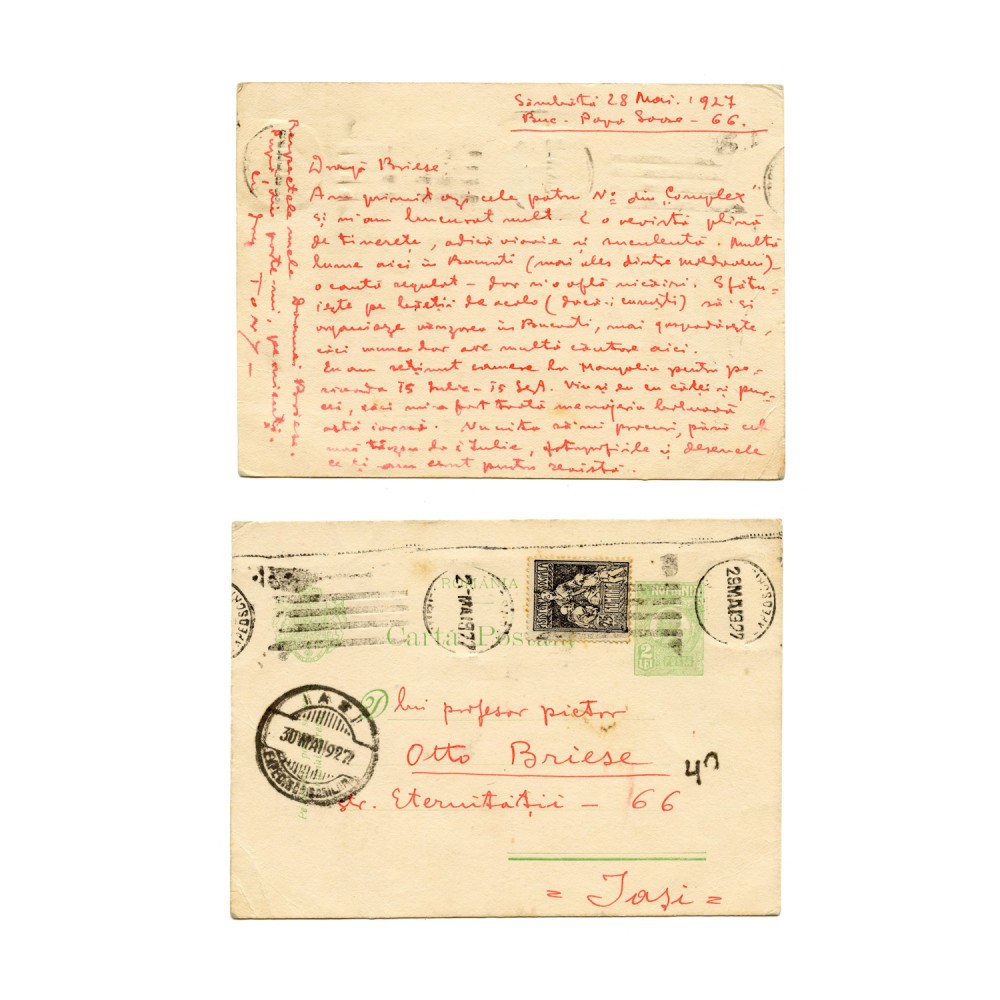 Sâmbătă 28 Mai. 1927
Buc. Popa Soare - 66.
Dragă Briese.
Am primit azi cele patru No din "Complex"
și m-au bucurat mult. E o revistă plină
de tinerețe, adică vioaie și suculentă. Multă
lume aici în București (mai ales dintre moldoveni)
o caută regulat - dar n'o află nicăiri. Sfătu-
iește pe băeții de acolo (dacă-i cunoști) să-și
organizeze vânzarea în București, mai gospodărește,
căci munca lor are multă căutare aici.
Eu am reținut camere la Mangalia pentru pe-
rioada 15 Iulie - 15 Sept. Viu și eu cu căței și pur-
cei, căci mi-a fost toată menajeria bolnavă
astă iarnă. Nu uita să-mi procuri, până cel
mai târziu la 1 Iulie, fotografiile și desenele
ce ți-am cerut pentru revistă.
Respectele mele Doamnei Briese.
cu drag Tony
ROMÂNIA
Carta Poștală
2 LEI
POSTA
25
27 MAI 1927
28 MAI 1927
IAȘI
30 MAI 1927
D lui profesor pictor
Otto Briese
str. Eternității - 66
40
= Iași =